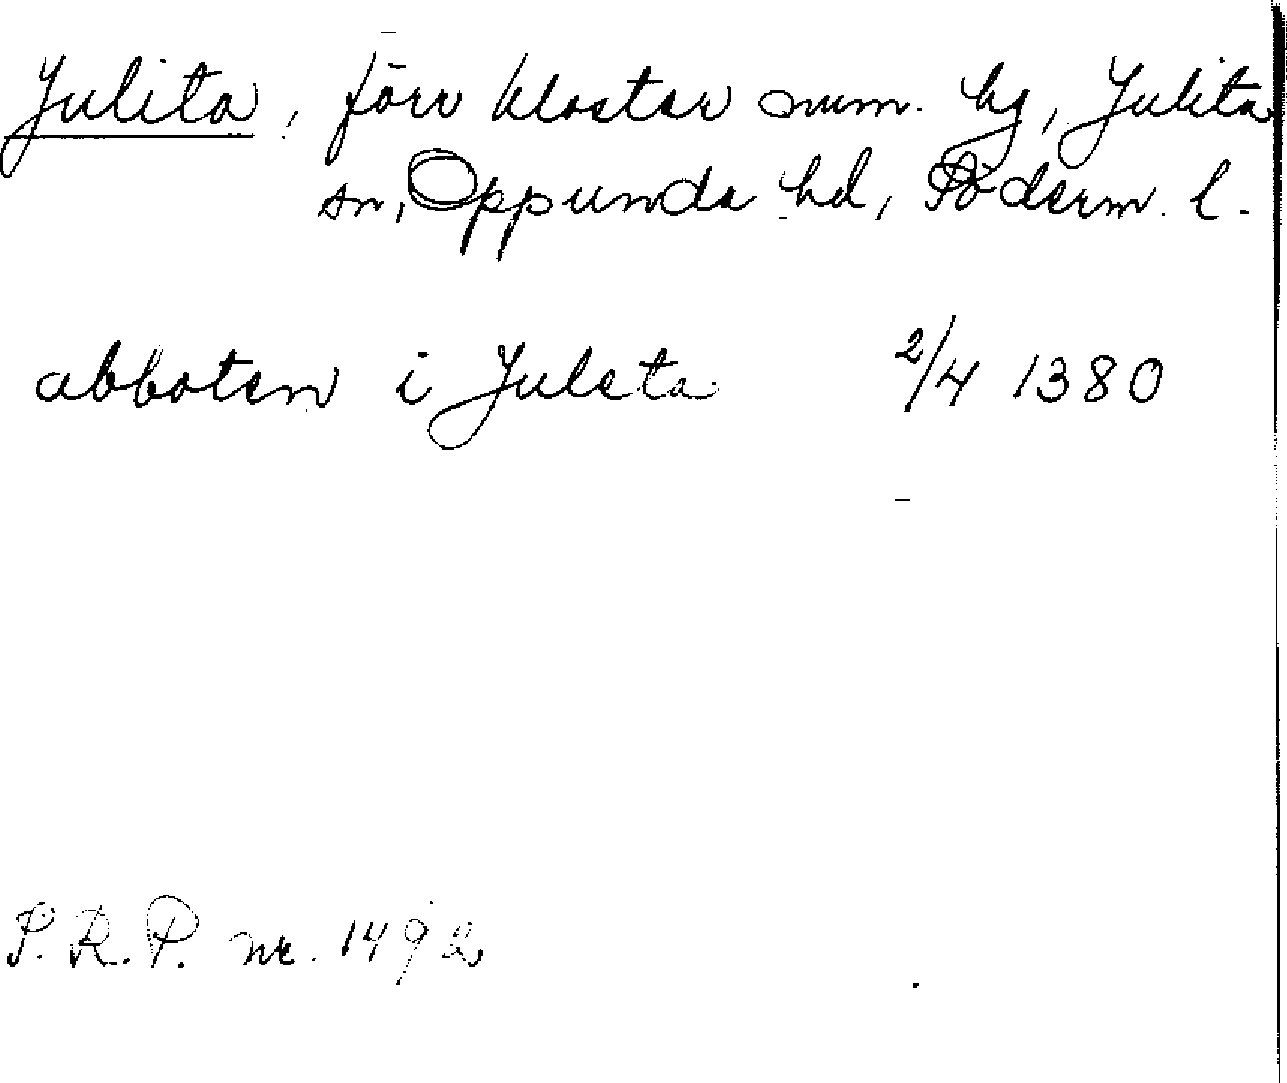 Julita, förv kloster num. hg, Julita
sn, Oppunda hd, Söderm. l.
abboten i Juleta 2/4 1380
P.R.P. nr. 1492